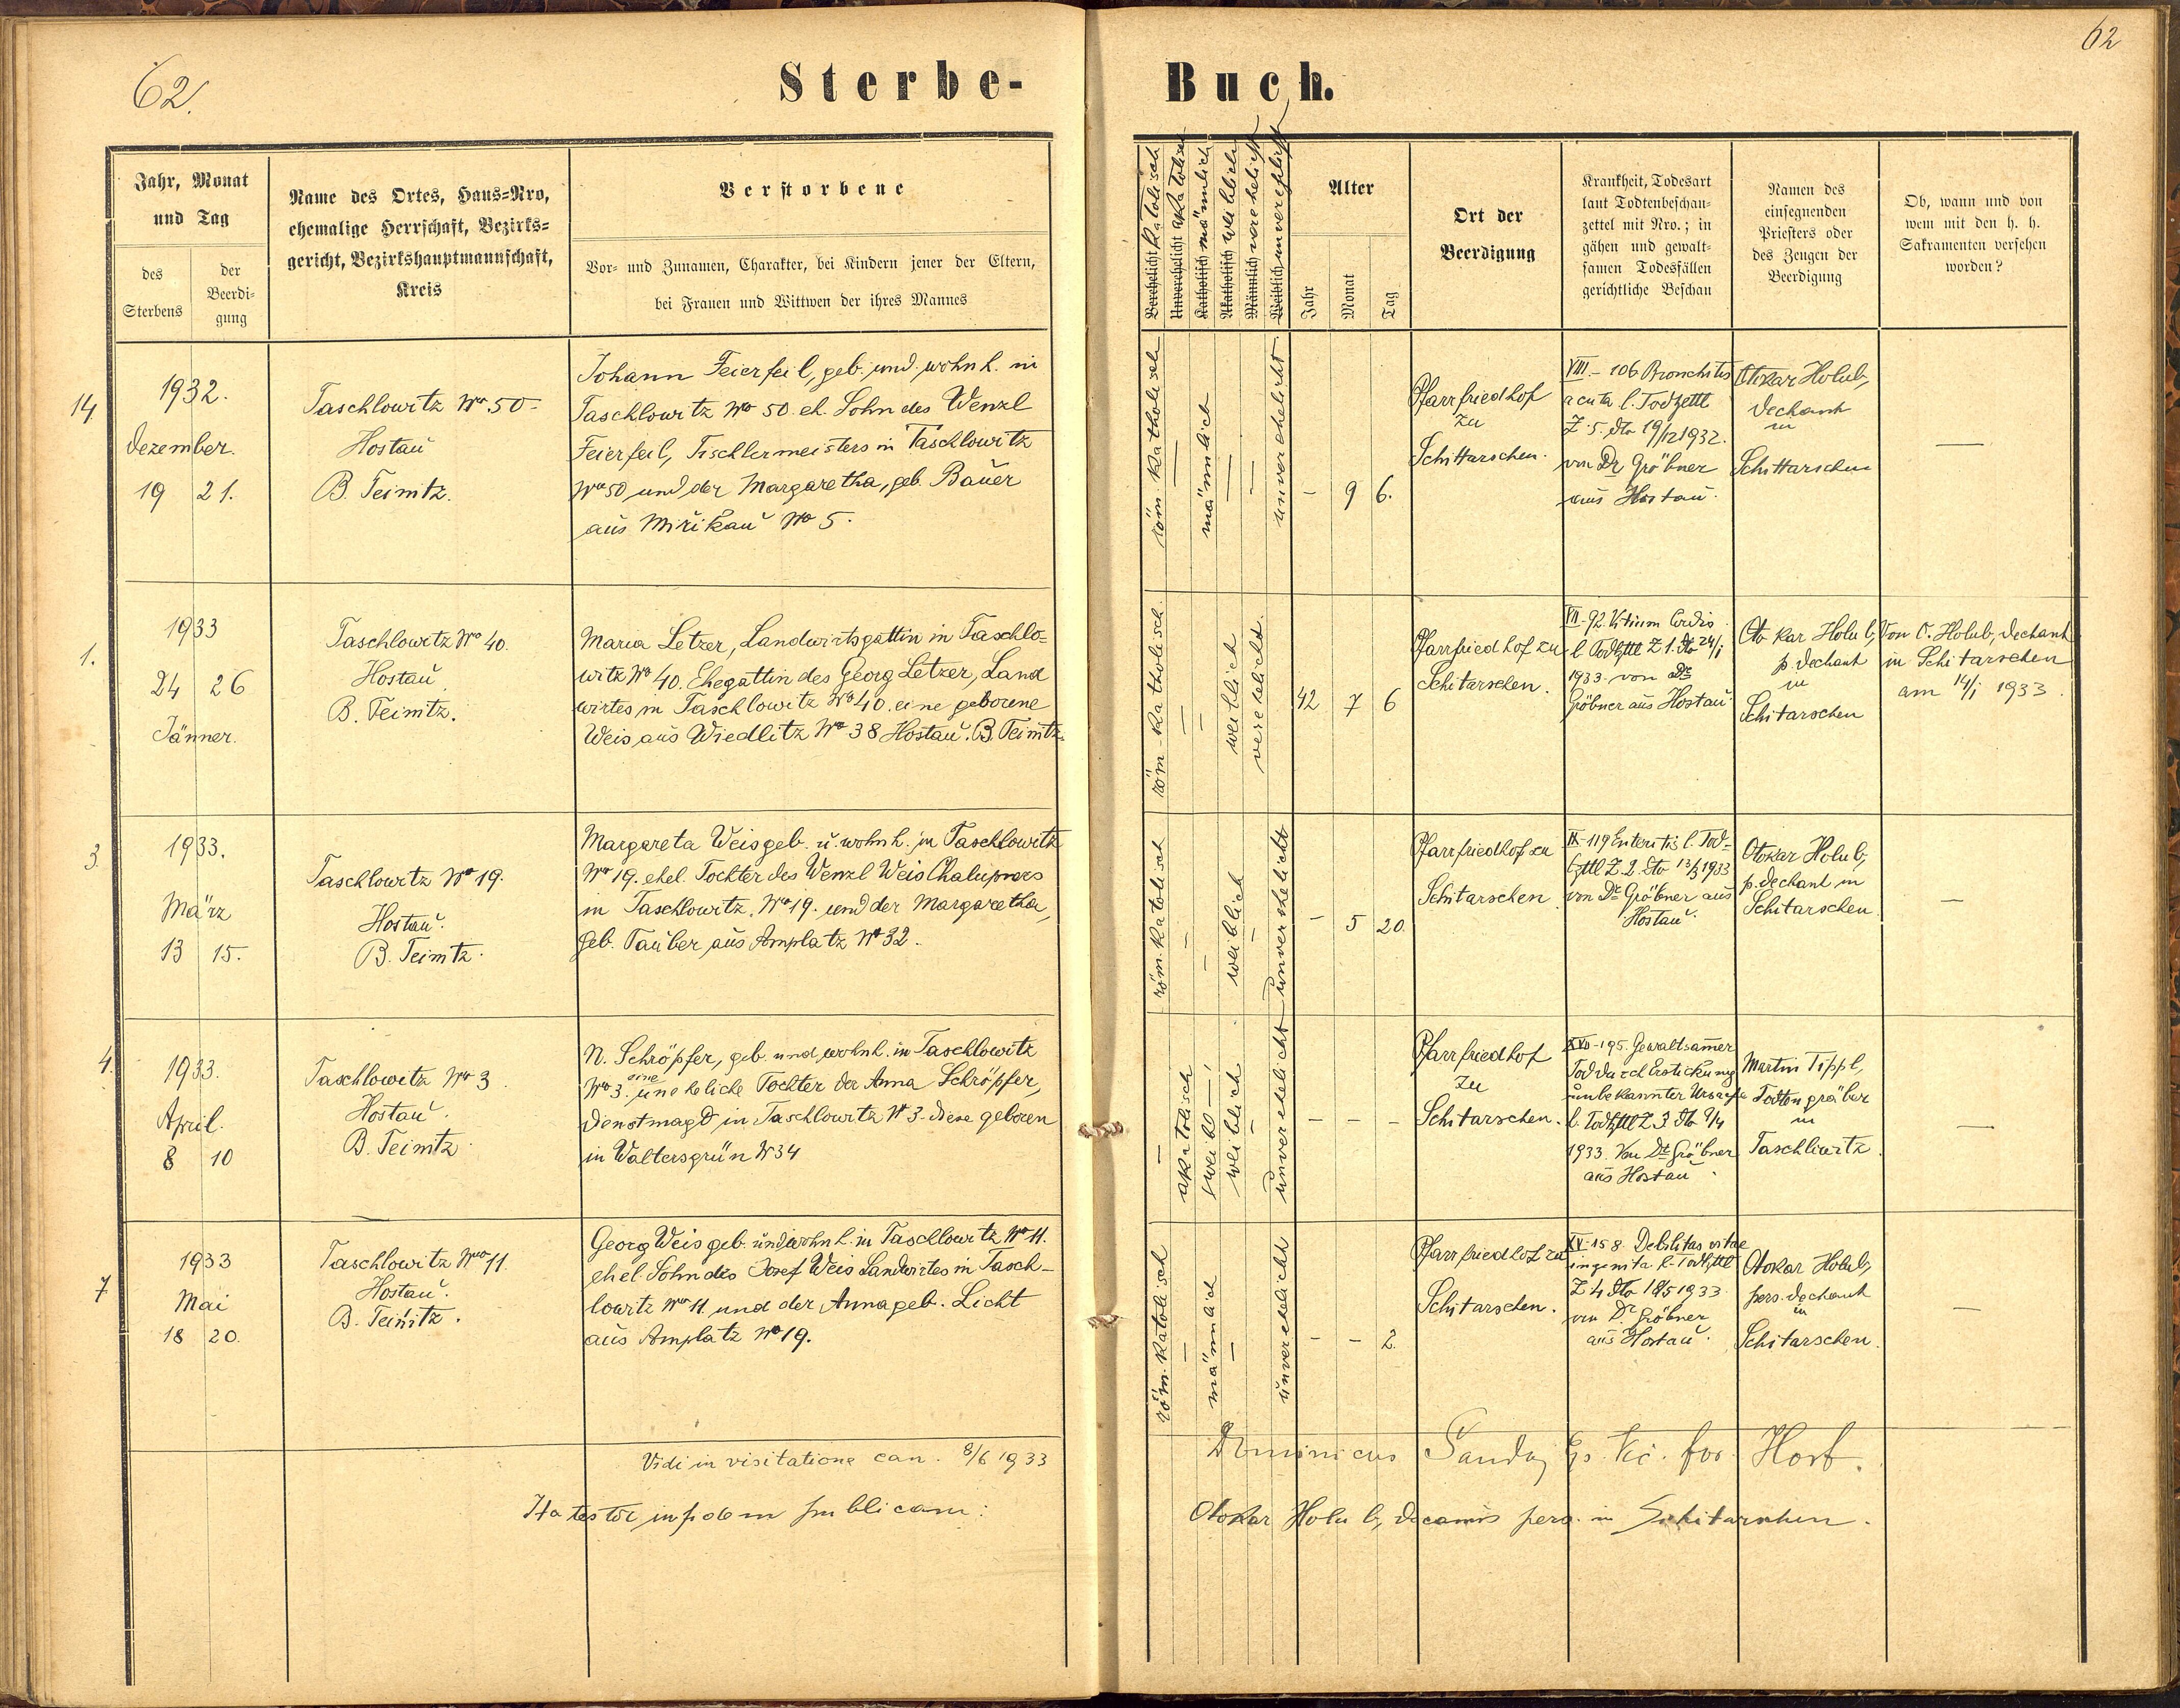 62.
62
Sterbe-
Buch.
Jahr, Monat
und Tag
des
Sterbens
der
Beerdi-
gung
Name des Ortes, Haus-Nro,
ehemalige Herrschaft, Bezirks-
gericht, Bezirkshauptmannschaft,
Kreis
Verstorbene
Vor- und Zunamen, Charakter, bei Kindern jener der Eltern,
bei Frauen und Wittwen der ihres Mannes
Verehelicht Katolisch
Unverehelicht akatolisch
Katholisch männlich
Akatholisch weiblich
Männlich verehelicht
Weiblich unverehelicht
Alter
Jahr
Monat
Tag
Ort der
Beerdigung
Krankheit, Todesart
laut Todtenbeschau-
zettel mit Nro.; in
gähen und gewalt-
samen Todesfällen
gerichtliche Beschau
Namen des
einsegnenden
Priesters oder
des Zeugen der
Beerdigung
Ob, wann und von
wem mit den h. h.
Sakramenten versehen
worden?
14
1932.
Dezember.
19 21.
Taschlowitz Nro. 50.
Hostau
B. Teinitz.
Johann Feierfeil, geb. und wohnh. in
Taschlowitz Nro 50. eh. Sohn des Wenzl
Feierfeil, Tischlermeisters in Taschlowitz
Nro 50 und der Margaretha, geb. Bauer
aus Mirikau No 5.
röm. katholisch
—
männlich
—
—
unverehelicht
— 9 6.
Pfarrfriedhof
zu
Schittarschen.
VIII. - 106 Bronchitis
acuta l. Todzettl
Z. 5. dto 19/12 1932.
von Dr Gröbner
aus Hostau.
Otokar Holub,
Dechant
in
Schittarschen
—
1.
1933
24 26
Jänner.
Taschlowitz Nro 40.
Hostau
B. Teinitz.
Maria Letzer, Landwirtsgattin in Taschlo-
witz No 40. Ehegattin des Georg Letzer, Land
wirtes in Taschlowitz No 40. eine geborene
Weis aus Wiedlitz No 38 Hostau. B. Teinitz.
röm-katholisch.
—
—
weiblich
verehelicht.
42 7 6
Pfarrfriedhof zu
Schitarschen.
VII-92. Vitium Cordis
l Todzttl Z 1. dto 24/1
1933. von Dr
Gröbner aus Hostau
Otokar Holub,
p. dechant
in
Schitarschen
Von O. Holub, Dechant
in Schitarschen
am 14/1 1933.
3
1933.
März
13 15.
Taschlowitz No 19.
Hostau.
B. Teinitz.
Margareta Weis geb. u. wohnh. in Taschlowitz
No 19. ehel. Tochter des Wenzl Weis Chalupners
in Taschlowitz. No 19. und der Margaretha,
geb. Tauber aus Amplatz No 32.
röm. katolisch
—
—
weiblich
—
unverehelicht
— 5 20.
Pfarrfriedhof zu
Schitarschen
IX-119 Enteritis l. Tod-
zttl Z. 2. dto 13/3 1933
von Dr Gröbner aus
Hostau.
Otokar Holub,
p. dechant in
Schitarschen.
—
4.
1933.
April.
8 10
Taschlowitz No 3.
Hostau.
B. Teinitz.
N. Schröpfer, geb. und wohnh. in Taschlowitz
No 3. eine uneheliche Tochter der Anna Schröpfer,
Dienstmagd in Taschlowitz No 3. diese geboren
in Waltersgrün No 34
—
akatolisch
weiblich
—
unverehelicht
— — —
Pfarrfriedhof
zu
Schitarschen.
195. Gewaltsamer
Tod durch Erstickung
unbekannter Ursache
l. Todzttl Z 3 dto 9/4
1933. Von Dr Gröbner
aus Hostau.
Martin Tippl,
Totengräber
in
Taschlowitz.
—
7
1933
Mai
18 20.
Taschlowitz Nro 11.
Hostau.
B. Teinitz.
Georg Weis geb. und wohnh. in Taschlowitz No 11.
ehel. Sohn des Josef Weis Landwirtes in Tasch-
lowitz No 11 und der Anna geb. Licht
aus Amplatz No 19.
röm. katolisch
—
männlich
—
unverehelicht
— — 2.
Pfarrfriedhof zu
Schitarschen.
XV-158. Debilitas vitae
ingenita l. Todzttl
Z 4 dto 18/5 1933.
von Dr Gröbner
aus Hostau.
Otokar Holub,
pers. dechant
in
Schitarschen.
—
Vidi in visitatione can. 8/6 1933
Dominicus Vic. for. Host.
Ita testor in fidem publicam:
Otokar Holub, decanus pers. in Schitarschen.